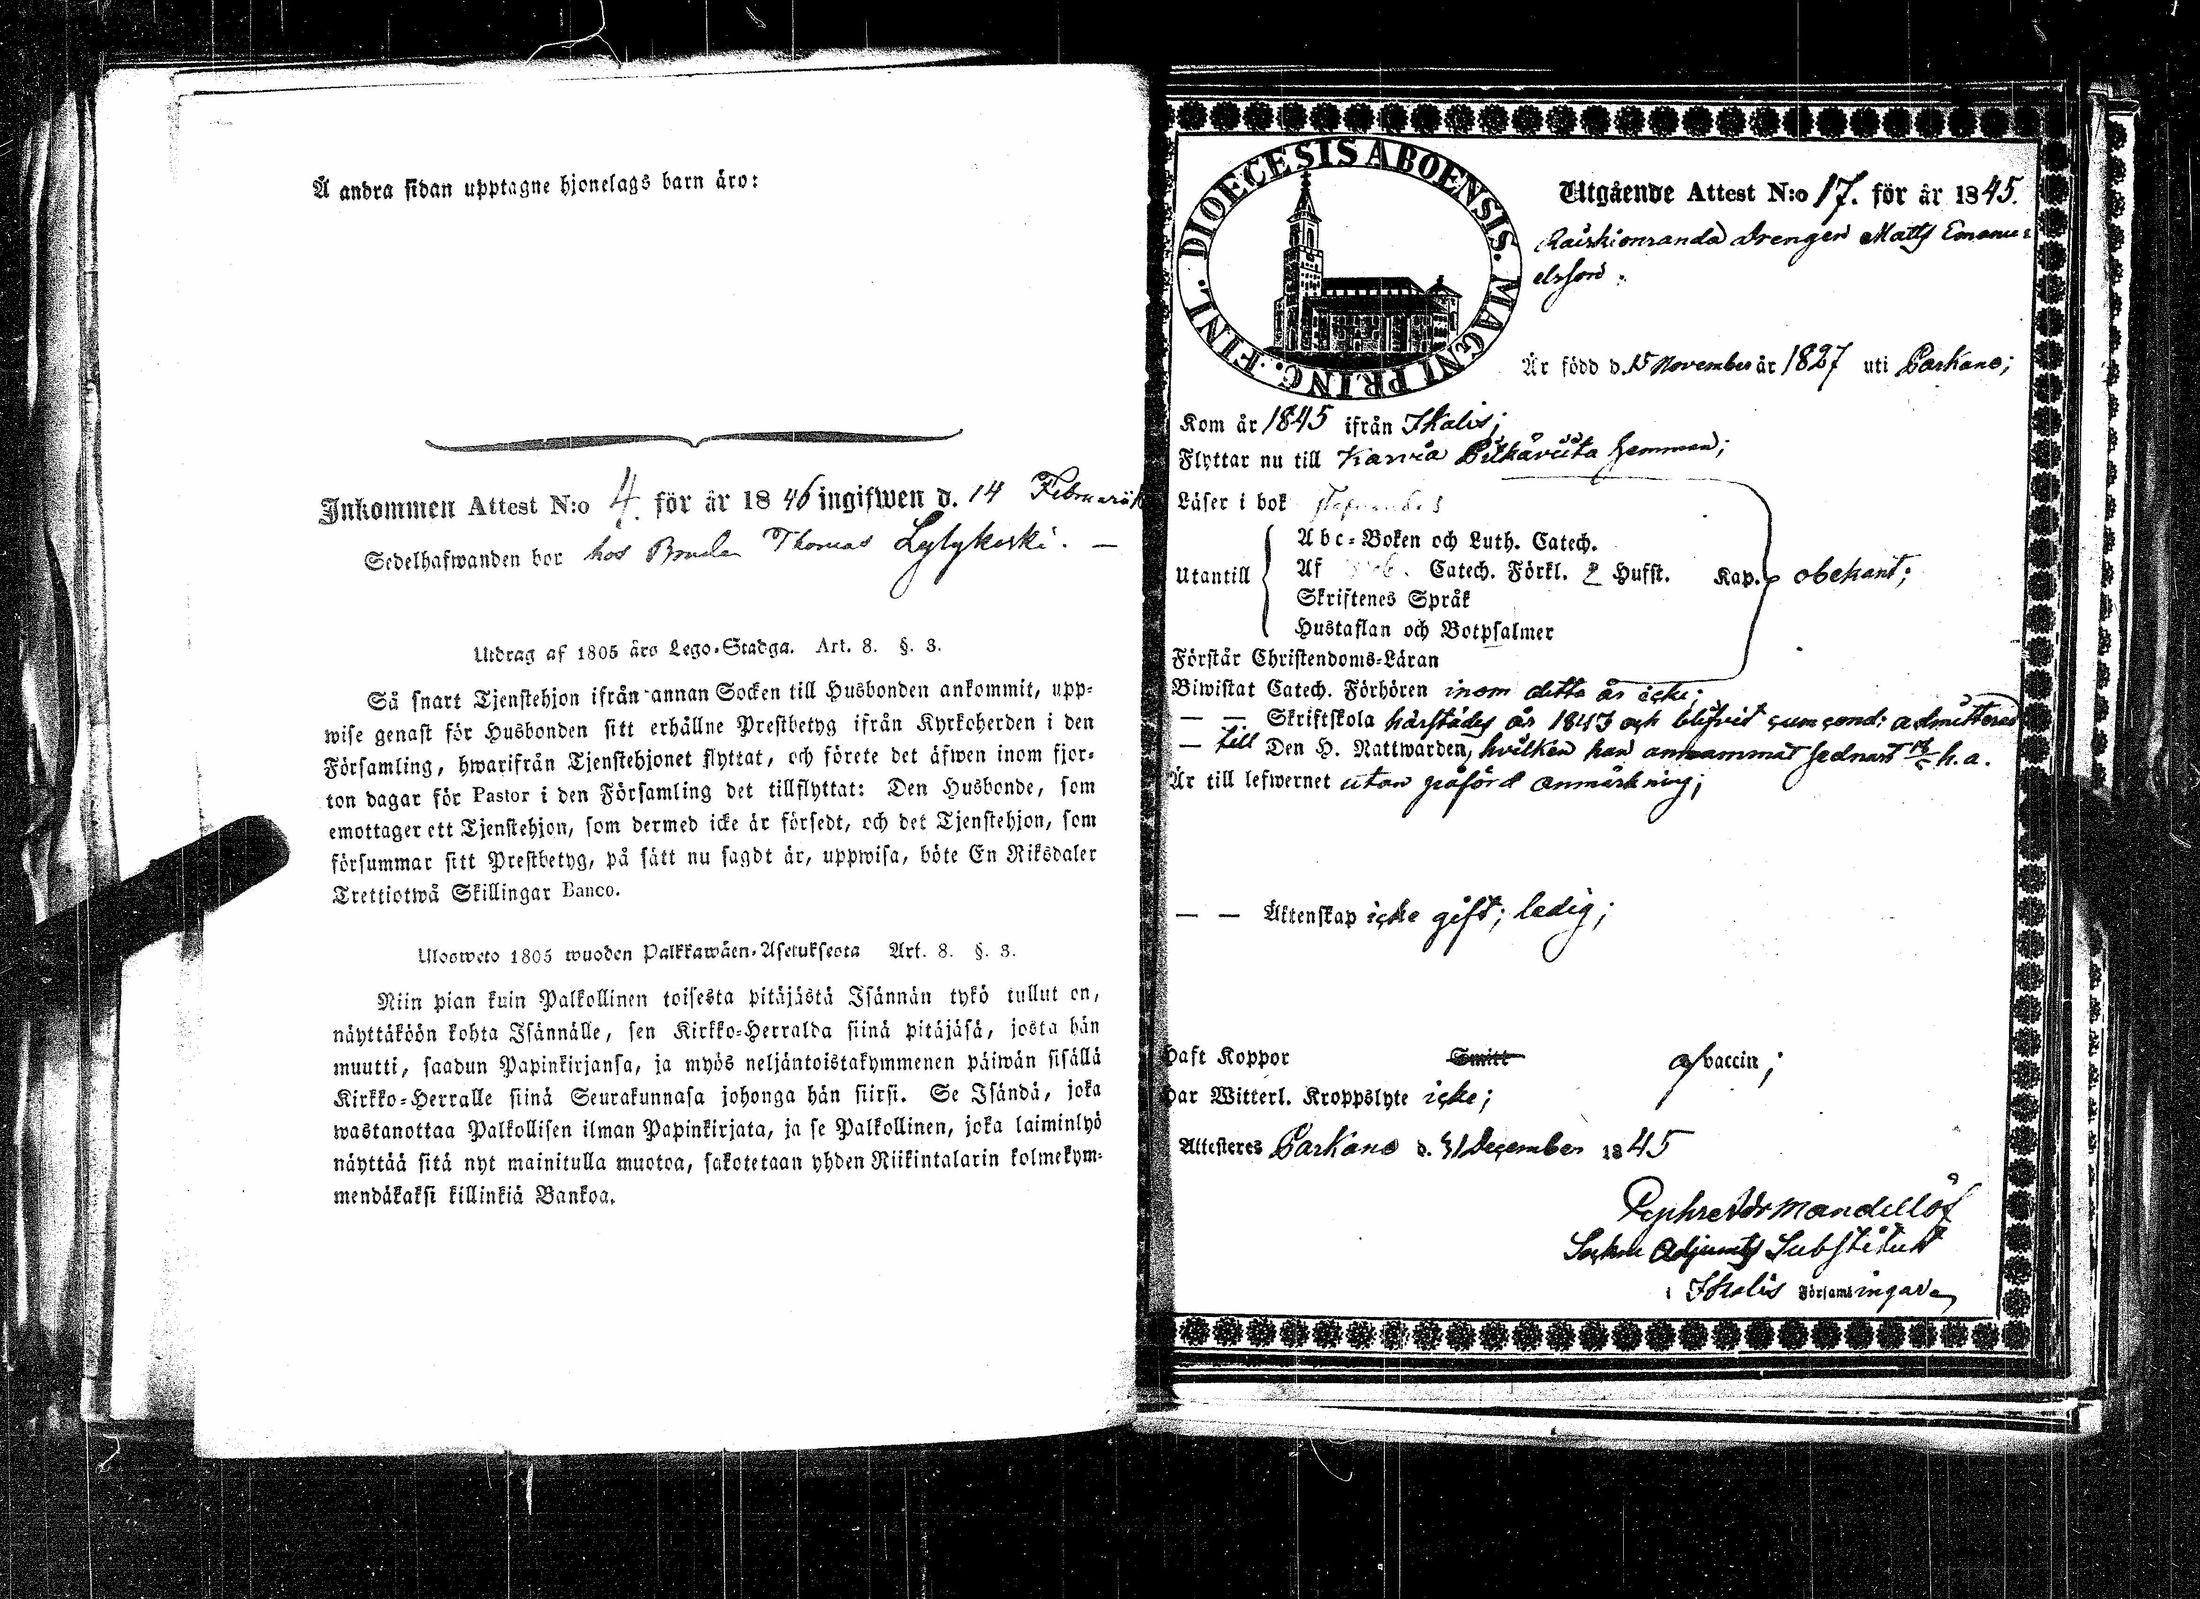 Å andra sidan upptagne hjonelags barn äro:
Inkommen Attest N:o 4. för år 1846 ingifwen d. 14 Februarii
Sedelhafwanden bor hos Bonden Thomas Lylykoski. —
Utdrag af 1805 års Lego-Stadga. Art. 8. §. 3.
Så snart Tjenstehjon ifrån annan Socken till Husbonden ankommit, upp-
wise genast för Husbonden sitt erhållne Prestbetyg ifrån Kyrkoherden i den
Församling, hwarifrån Tjenstehjonet flyttat, och förete det äfwen inom fjor-
ton dagar för Pastor i den Församling det tillflyttat: Den Husbonde, som
emottager ett Tjenstehjon, som dermed icke är försedt, och det Tjenstehjon, som
försummar sitt Prestbetyg, på sätt nu sagdt är, uppwisa, böte En Riksdaler
Trettiotwå Skillingar Banco.
Ulosweto 1805 wuoden Palkkawäen-Asetuksesta Art. 8. §. 3.
Niin pian kuin Palkollinen toisesta pitäjästä Isännän tykö tullut on,
näyttäköön kohta Isännälle, sen Kirkko-Herralda siinä pitäjäsä, josta hän
muutti, saadun Papinkirjansa, ja myös neljäntoistakymmenen päiwän sisällä
Kirkko-Herralle siinä Seurakunnasa johonga hän siirsi. Se Isändä, joka
wastanottaa Palkollisen ilman Papinkirjata, ja se Palkollinen, joka laiminlyö
näyttää sitä nyt mainitulla muotoa, sakotetaan yhden Riikintalarin kolmekym-
mendäkaksi killinkiä Bankoa.
DIOECESIS ABOENSIS. MAGNI PRINC. FINL.
Utgående Attest N:o 17. för år 1845.
drengen Matts Emanu-
elsson.
Är född d. 15 November år 1827 uti Parkano;
Kom år 1845 ifrån Ikalis;
Flyttar nu till Karvia hemman;
Läser i bok
Abc-Boken och Luth. Catech.
Utantill Af Catech. Förkl. 2 Hufst. Kap. obekant;
Skriftenes Språk
Hustaflan och Botpsalmer
Förstår Christendoms-Läran
Biwistat Catech. Förhören inom detta år icke;
— — Skriftskola härstädes år 1843 och blifvit admitterad
— till Den H. Nattwarden, hvilken han annammat sednast h. a.
Är till lefwernet utan påförd anmärkning;
— — Äktenskap icke gift; ledig;
Haft Koppor Smitt af vaccin;
Har Witterl. Kroppslyte icke;
Attesteres Parkano d. 31 December 1845
Mandellöf
Socken Adjuncts Substitut
i Ikalis Församlingar